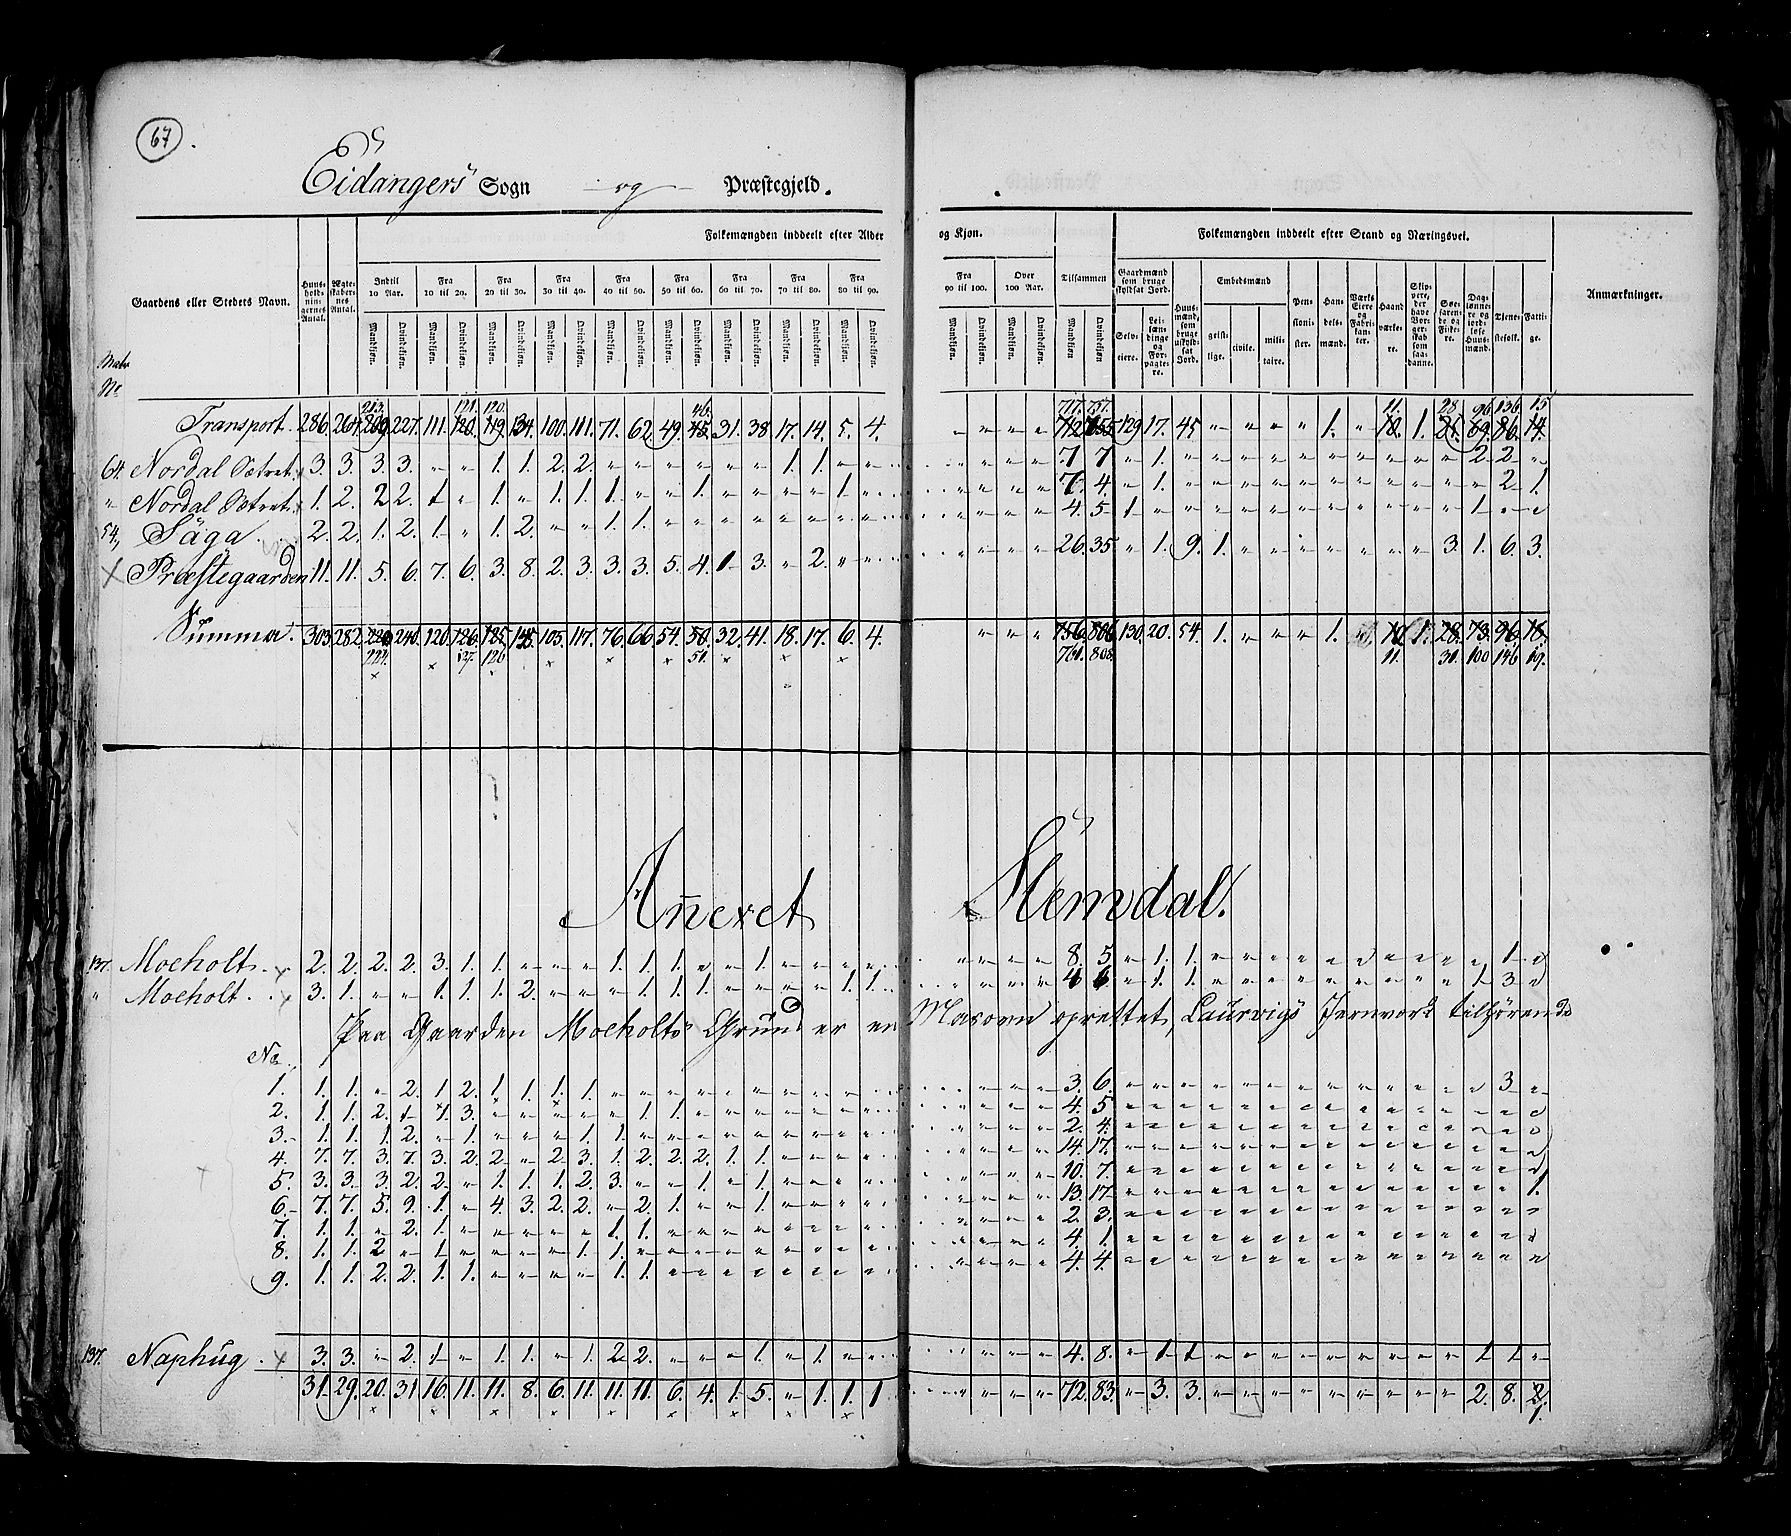 67.
Eidangers Sogn og Præstegjeld.
Folkemængden inddeelt efter Alder og Kjøn. Folkemængden inddeelt efter Stand og Næringsvei.
Gaardens eller Stedets Navn. Huus-holdnin-gernes Antal. Ægte-skaber-nes Antal. Indtil 10 Aar. Fra 10 til 20. Fra 20 til 30. Fra 30 til 40. Fra 40 til 50. Fra 50 til 60. Fra 60 til 70. Fra 70 til 80. Fra 80 til 90. Fra 90 til 100. Over 100 Aar. Tilsammen Gaardmænd som bruge skyldsat Jord. Huus-mænd, som bruge uskyld-sat Jord. Embedsmænd Pen-sioni-ster. Han-dels-mænd. Værks Eiere og Fabri-kan-ter. Haand-værke-re. Søe-farende og Fiske-re. Dag-lønne-re og jord-løse Huus-mænd. Tjene-stefolk. Fatti-ge. Anmærkninger.
Mandkjøn. Qvindekjøn. Selv-eiere. Lei-læn-dinge og For-pagte-re. geist-lige. civile. mili-taire.
Matr No
Transport. 286. 264. 227. 111. 134. 100. 111. 71. 62. 49. 31. 38. 17. 14. 5. 4. 129 17. 45 1. 1.
64. Nordal Sætret. 3. 3. 3. 3. " " 1. 1. 2. 2. " " " " " " 1. 1. " " 7 7 " 1. 2 2
" Nordal Sætret. 1. 2. 2 2. 1 " 1. " 1. 1. 1. " " 1. 1. 7. 4. " 1. 2 1.
54. Säga. 2. 2. 1. 2. 1. " 1. 2. " " 1. 1. 4. 5 1 1.
Præstegaarden 11. 11. 5. 6. 7. 6. 3. 8. 2. 3. 3. 3. 5. 4. 1 3. " 2. 26. 35. " 1. 9. 1. 3. 1. 6. 3.
Summa. 303 282 240. 120. 126. 125. 145. 103. 117. 76. 66 54. 50. 32. 41. 18. 17. 6. 4. 756. 806. 130. 20. 54. 1. 1. 10 1. 28. 73. 96. 18.
224. 127. 126 51. 761. 808. 11. 31. 100 146 19.
Anexet Slemdal.
137. Moeholt. 2. 2. 2. 2. 3. 1. 1. " " " 1. 1. 1. " " 1. 8. 5 " 1. 1. 1.
" Moeholt. 3. 1. " " 1. 1. 1. 2. " " " 1. 1. 1. 1. 1. 4 6 " 1. 1. 1 3
Paa Gaarden Moeholts Grund er en Masovn oprettet, Laurvigs Jernværk tilhørende
No
1. 1. 1. " 2. 1. 2. 1. 1. 1. 1. 3. 6. 3
2. 1. 1. 2. 1 1. 3. 1. 1. 4. 5
3. 1. 1. 1. 2. " 1. 1. 1. 2. 4.
4. 7. 7. 3. 7. 3. 2. 2 " 2. 3. 1. 2. 2. 2. 1. 1. 14. 17.
5. 3. 3. 3. 2. 2. " 1. 1. 1. 2. 3. " " 1. " 1. 10. 7. 1.
6. 7. 7. 5. 9. 1. " 4. 3. 2. 2. " 2. 1. " " 1. 13. 17 1.
7. 1. 1. " 2. 1. 1. 1. 2. 3.
8. 1. 1. 2 " 1. 1. 1. 4. 1.
9. 1. 1. 2. 2. 1. 1. 1. 1. 4. 4.
137. Naphug. 3. 3. " 2. 1 " 1. 1. " 1. 2 2. " " " 1. " 1. 4. 8. " 1 1 1 1
31. 29. 20. 31 16. 11. 11. 8. 6. 11. 11. 11. 6. 4. 1. 5. " 1. 1. 1 72. 83. " 3. 3. 2. 8. 2
1.